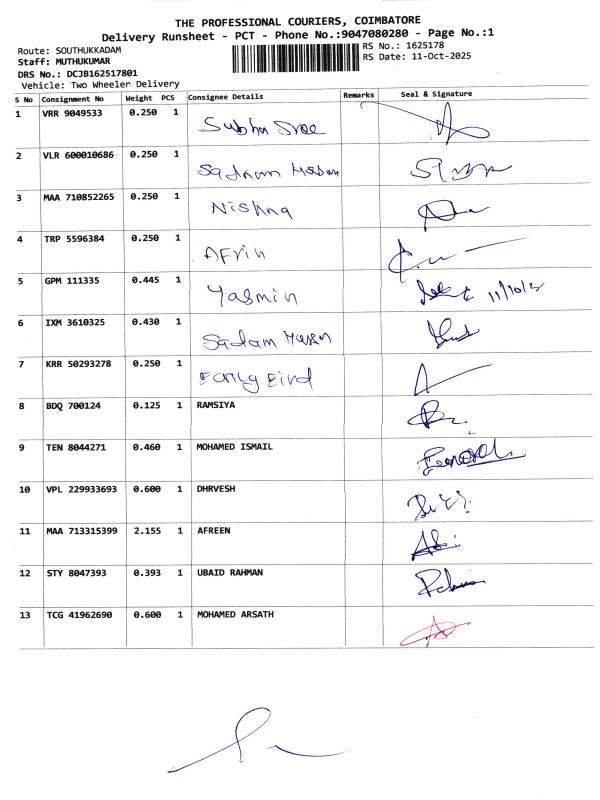 THE PROFESSIONAL COURIERS, COIMBATORE
Delivery Runsheet - PCT - Phone No.:9047080280 - Page No.:1
Route: SOUTHUKKADAM RS No.: 1625178
Staff: MUTHUKUMAR RS Date: 11-Oct-2025
DRS No.: DCJB162517801
Vehicle: Two Wheeler Delivery
S No Consignment No Weight PCS Consignee Details Remarks Seal & Signature
1 VRR 9049533 0.250 1 Subha Sree
2 VLR 600010686 0.250 1 Sadham
3 MAA 710852265 0.250 1 Nishna
4 TRP 5596384 0.250 1 Afrin
5 GPM 111335 0.445 1 Yasmin
6 IXM 3610325 0.430 1 Sadam
7 KRR 50293278 0.250 1
8 BDQ 700124 0.125 1 RAMSIYA
9 TEN 8044271 0.460 1 MOHAMED ISMAIL
10 VPL 229933693 0.600 1 DHRVESH
11 MAA 713315399 2.155 1 AFREEN
12 STY 8047393 0.393 1 UBAID RAHMAN
13 TCG 41962690 0.600 1 MOHAMED ARSATH